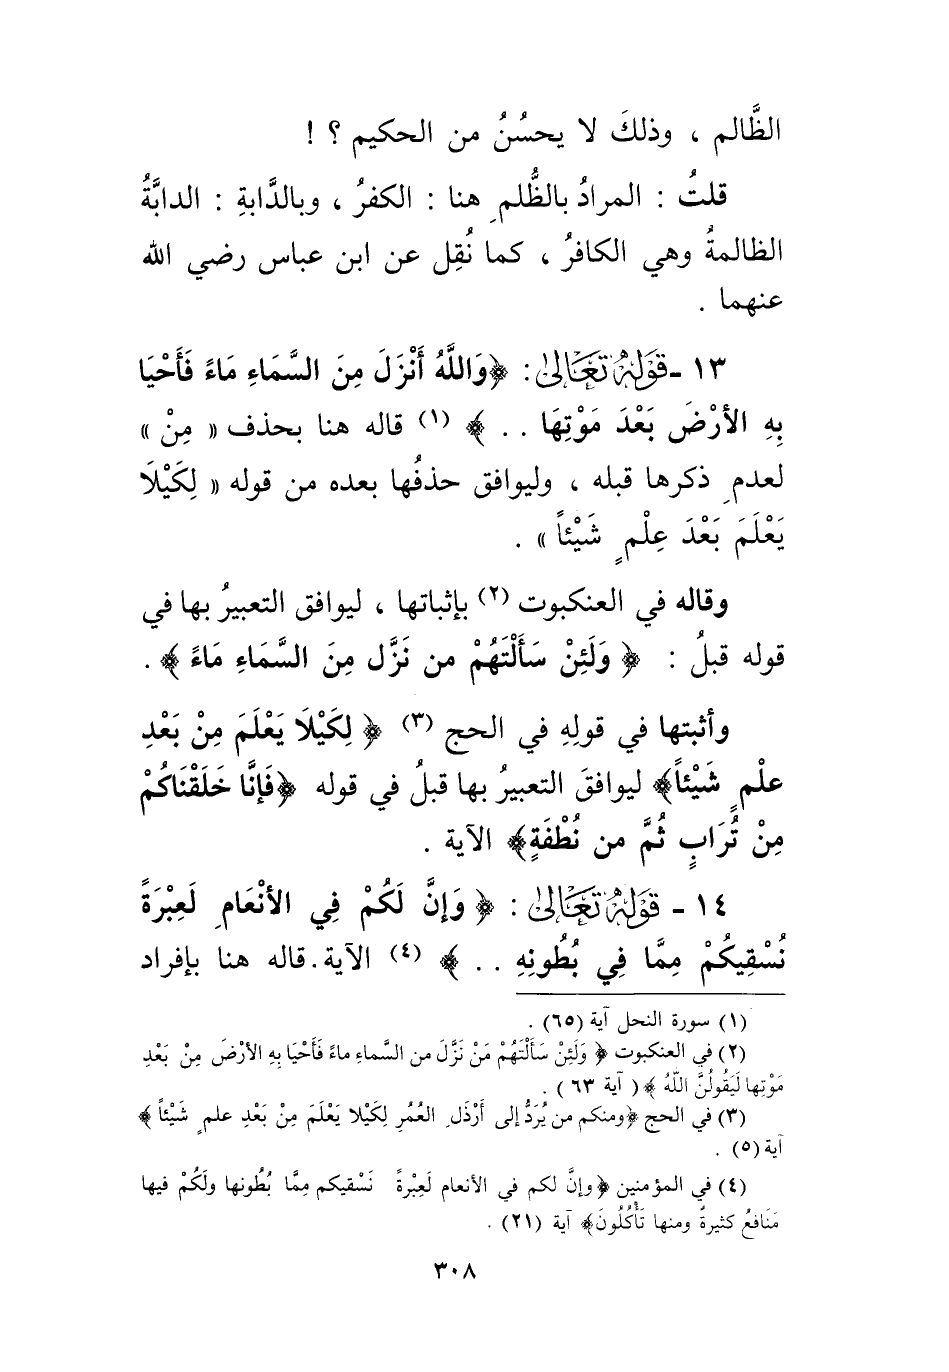 الظَّالم ، وذلكَ لا يحسُنُ من الحكيم ؟ !
قلتُ : المرادُ بالظُّلمِ هنا : الكفرُ ، وبالدَّابةِ : الدابَّةُ
الظالمةُ وهي الكافرُ ، كما نُقِل عن ابن عباس رضي الله
عنهما .
١٣ - قَوْلُهُ تَعَالَىٰ : ﴿وَاللَّهُ أَنْزَلَ مِنَ السَّمَاءِ مَاءً فَأَحْيَا
بِهِ الأرْضَ بَعْدَ مَوْتِهَا . . ﴾ (١) قاله هنا بحذف « مِنْ »
لعدمِ ذكرها قبله ، وليوافق حذفُها بعده من قوله « لِكَيْلَا
يَعْلَمَ بَعْدَ عِلْمٍ شَيْئاً » .
وقاله في العنكبوت (٢) بإثباتها ، ليوافق التعبيرُ بها في
قوله قبلُ : ﴿ وَلَئِنْ سَأَلْتَهُمْ من نَزَّل مِنَ السَّمَاءِ مَاءً ﴾ .
وأثبتها في قولِهِ في الحج (٣) ﴿ لِكَيْلَا يَعْلَمَ مِنْ بَعْدِ
علْمٍ شَيْئاً﴾ ليوافقَ التعبيرُ بها قبلُ في قوله ﴿فَإِنَّا خَلَقْنَاكُمْ
مِنْ تُرَابٍ ثُمَّ من نُطْفَةٍ﴾ الآية .
١٤ - قَوْلُهُ تَعَالَىٰ : ﴿ وَإِنَّ لَكُمْ فِي الأنْعَامِ لَعِبْرَةً
نُسْقِيكُمْ مِمَّا فِي بُطُونِهِ . . ﴾ (٤) الآية . قاله هنا بإفراد
(١) سورة النحل آية (٦٥) .
(٢) في العنكبوت ﴿ وَلَئِنْ سَأَلْتَهُمْ مَنْ نَزَّلَ من السَّماءِ ماءً فَأَحْيَا بِهِ الأرْضَ مِنْ بَعْدِ
مَوْتِها لَيَقُولُنَّ اللَّهُ ﴾ ( آية ٦٣ ) .
(٣) في الحج ﴿ومنكم من يُرَدُّ إلى أَرْذَلِ العُمُرِ لِكَيْلا يَعْلَمَ مِنْ بَعْدِ علمٍ شَيْئاً ﴾
آية (٥) .
(٤) في المؤمنين ﴿وإنَّ لكم في الأنعام لَعِبْرةً نَسْقيكم مِمَّا بُطُونها ولَكُمْ فيها
مَنَافعُ كثيرةٌ ومنها تَأْكُلُونَ﴾ آية (٢١) .
٣٠٨